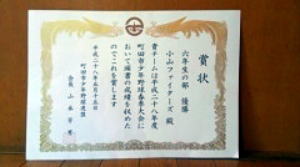 賞状
六年生の部 優勝
小山ファイターズ 殿
貴チームは平成二十八年度
町田市少年野球春季大会に
おいて頭書の成績を収めた
のでこれを賞します
平成二十八年五月十五日
町田市少年野球連盟
会長 山